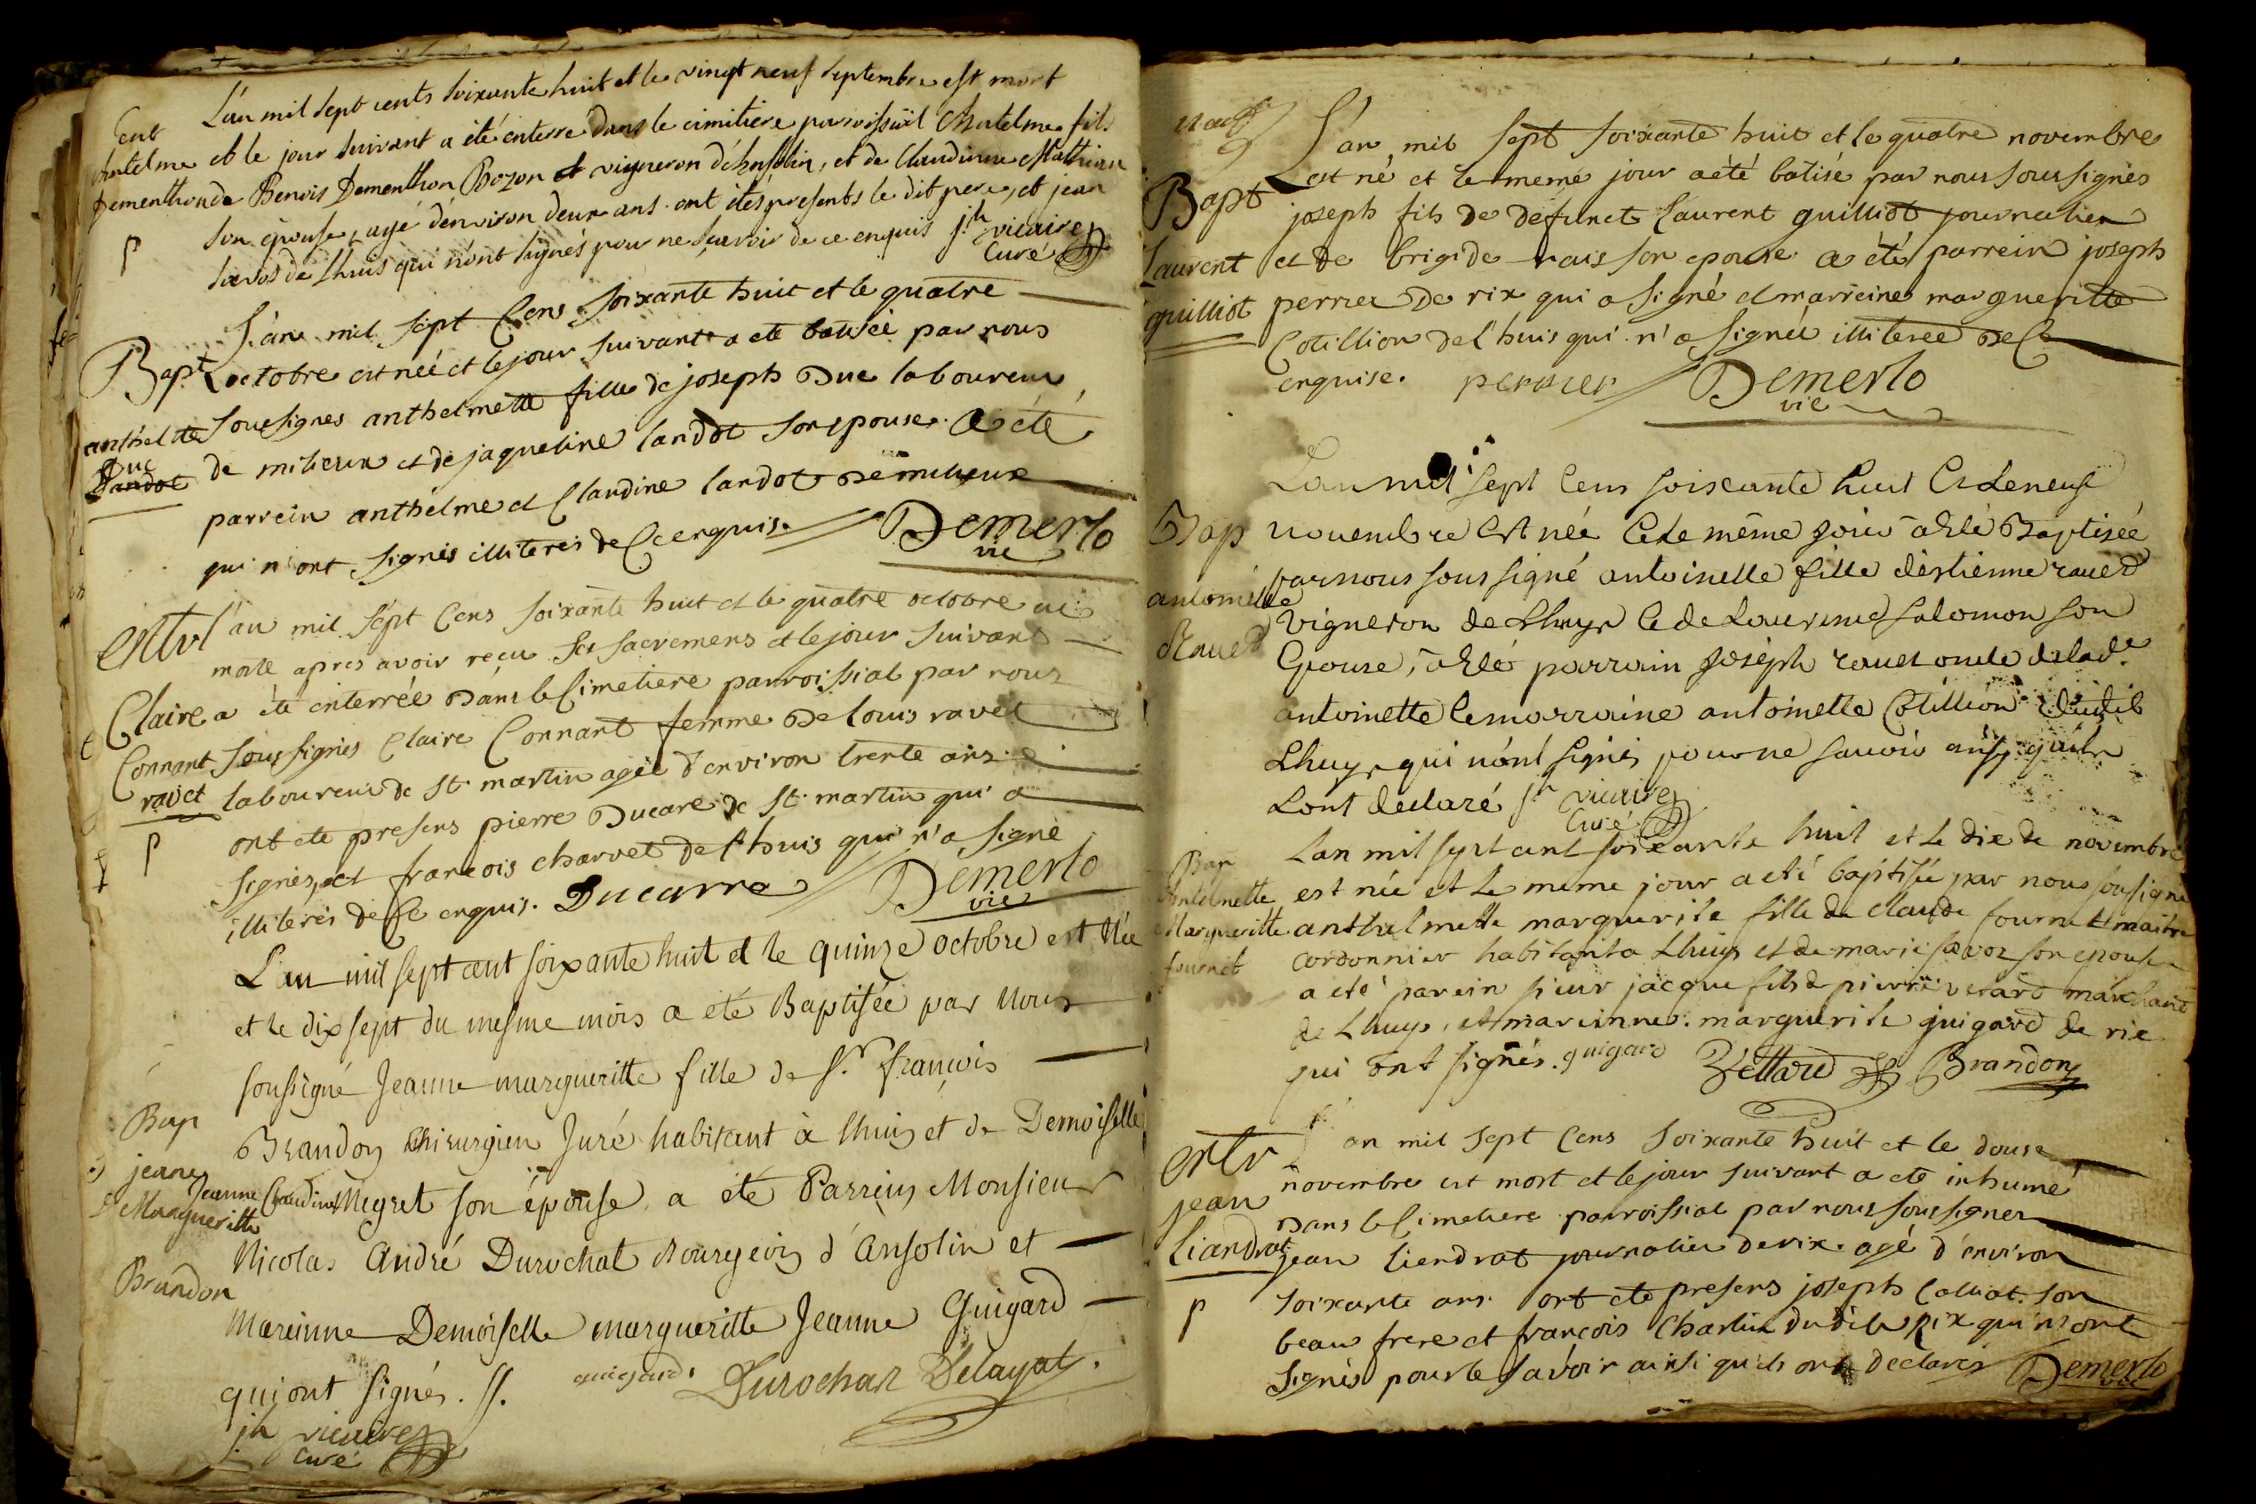 L'an mil sept cents soixante huit et le vingt neuf septembre est mort
et le jour suivant a été enterré dans le cimitiere paroissial Anthelme fils
de Benois Dementhon Bozon et vigneron d'Ansolin, et de Claudine Mathieu
son épouse, agé d'environ deux ans. ont étés presents le dit pere, et jean
de Lhuis qui n'ont signés pour ne sçavoir de ce enquis jh vicaire
Curé
Ent
Antelme
Dementhon
p
L'an mil sept Cens soixante huit et le quatre
octobre est née et le jour suivant a eté batisée par nous
sousignes anthelmette fille de joseph Duc laboureur
de milieux et de jaqueline landot son epouse. a été
parrein anthelme et Claudine landot de milieux
qui n'ont signés illiteres de Ce enquis. Demerlo
vic
Bapt
anthelmte
Duc
Landot
L'an mil sept Cens soixante huit et le quatre octobre est
morte apres avoir reçu ses sacremens et le jour suivant
a été enterrée Dans le Cimetiere parroissial par nous
sous signés Claire Connant femme De louis ravet
laboureur de st. martin agée d'environ trente ans.
ont eté presens pierre Ducare de St. martin qui a
signés, et françois charvet de l'huis qui n'a signé
illiterés de Ce enquis. Ducarre Demerlo
vic
entr
Claire
Connant
ravet
p
L'an mil sept cent soixante huit et le quinze octobre est Née
et le dix sept du mesme mois a eté Baptisée par Nous
soussigné Jeanne margueritte fille de Sr. françois
Brandon Chirurgien Juré habitant à lhuis et de Demoiselle
Jeanne Claudine Megret son épouse a eté Parrein Monsieur
Nicolas André Durochat Bourgeois d'Ansolin et
Mareinne Demoiselle margueritte Jeanne Guigard
qui ont signés. //.
guigard. Durochat Delayat.
jh vicaire
Curé
Bap
jeanne
Margueritte
Brandon
L'an mil sept soixante huit et le quatre novembre
est né et le meme jour a été batisé par nous sous signés
joseph fils de défunct Laurent guilliot journalier
et de brigide rais son epouse a été parrein joseph
perrier De rix qui a signé et marreine margueritte
Cotillion de l'huis qui n'a signée illiterée de Ce
enquise. perrier Demerlo
vic
Bapt
Laurent
guilliot
L'an mil sept Cens soixante huit Et Le neuf
novembre Est née Et le même jour a Eté Baptisée
par nous sous signé antoinette fille d'estienne ravet
Vigneron de Lhuys Et de Laurence salomon son
Epouse, a Eté parrain joseph ravet oncle de lade.
antoinette Et marraine antoinette Cotillion dudit
Lhuys qui n'ont signés pour ne savoir ainsy qu'ils
Lont declaré jh vicaire
Curé
Bap
antoinette
Ravet
Lan mil sept cent soixante huit et le dix de novembre
est née et le meme jour a eté baptisée par nous sousigné
anthelmette marguerite fille de claude fournet maitre
cordonnier habitant a Lhuys et de marie savoz son epouse
a eté parein sieur jacque fils de pierre verard marchand
de Lhuys, et mareinne. marguerite guigard de rix
qui ont signés. guigard Brandon
Bap
Antelmette
Margueritte
fournet
L'an mil sept Cens soixante huit et le douse
novembre est mort et le jour suivant a eté inhumé
Dans le Cimetiere parroissial par nous soussignes
jean liendrat journalier de rix. agé d'environ
soixante ans. ont eté presens joseph Calliat. son
beau frere et françois Charlin dudit Rix qui n'ont
signés pour le savoir ainsi quils ont declarés Demerlo
vic
entr
jean
Liandrat
p